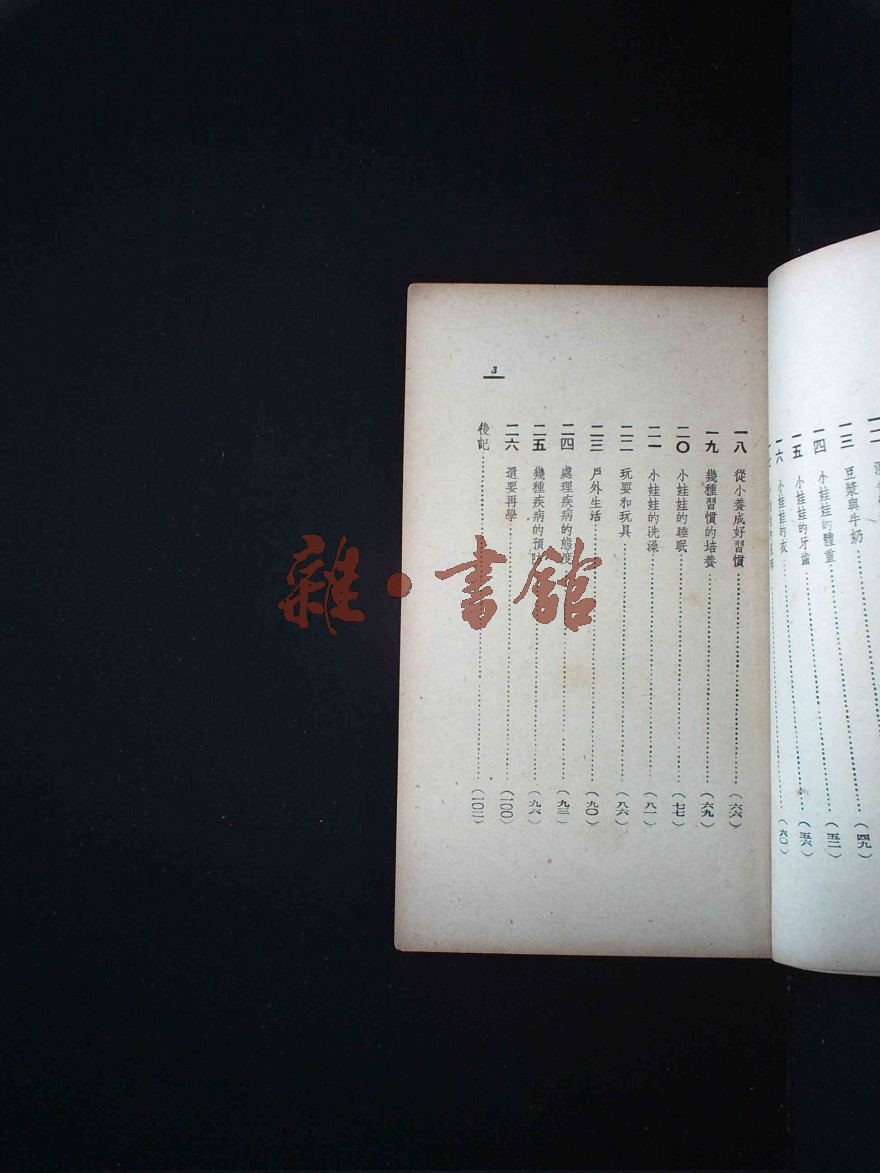 一三 豆漿與牛奶……(四九)
一四 小娃娃的體重……(五二)
一五 小娃娃的牙齒……(五六)
一六 小娃娃的衣……(六〇)
3
一八 從小養成好習慣……(六六)
一九 幾種習慣的培養……(六九)
二〇 小娃娃的睡眠……(七七)
二一 小娃娃的洗澡……(八一)
二二 玩耍和玩具……(八六)
二三 戶外生活……(九〇)
二四 處理疾病的態度……(九三)
二五 幾種疾病的預防……(九六)
二六 還要再學……(一〇〇)
後記……(一〇二)
雜·書館